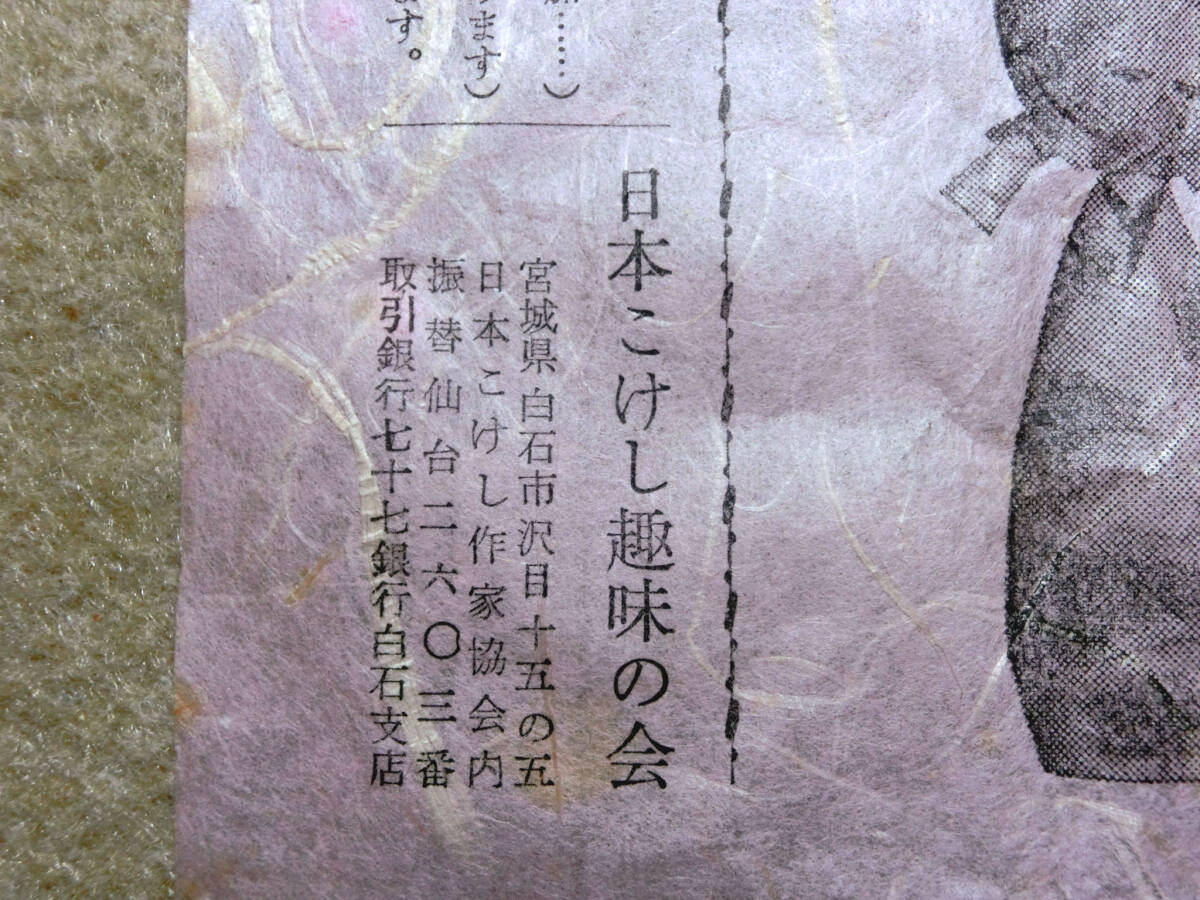 ……）
ります）
ます。
日本こけし趣味の会
宮城県白石市沢目十五の五
日本こけし作家協会内
振替仙台二六〇三番
取引銀行七十七銀行白石支店